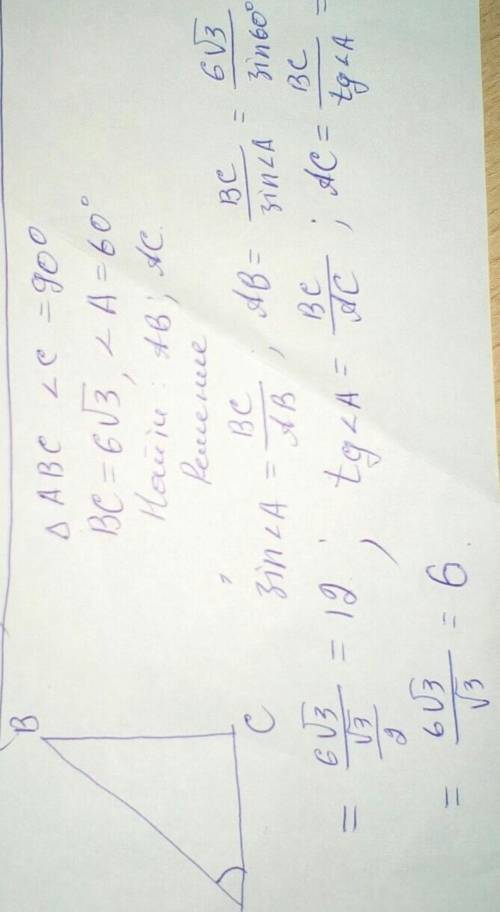 B
C
Δ ABC ∠C = 90°
BC = 6√3, ∠A = 60°
Найти: AB; AC.
Решение
sin∠A = BC/AB; AB = BC/sin∠A = 6√3/sin60°
= 6√3/(√3/2) = 12; tg∠A = BC/AC; AC = BC/tg∠A =
= 6√3/√3 = 6